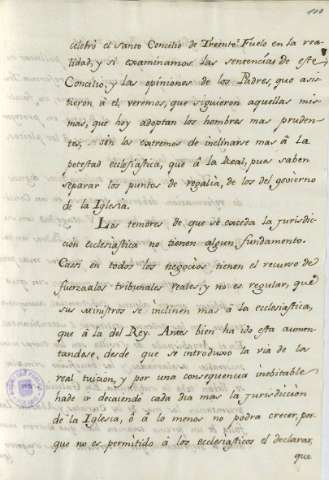 110
celebró el santo Concilio de Trento. Fuelo en la rea-
lidad, y si examinamos las sentencias de este
Concilio, y las opiniones de los Padres, que asis-
tieron á él, veremos, que siguieron aquellas mis-
mas, que hoy adoptan los hombres mas pruden-
tes, sin los extremos de inclinarse mas â la
potestad eclesiástica, que â la Real, pues saben
separar los puntos de regalía, de los del govierno
de la Iglesia.
Los temores de que se exceda la jurisdic-
ción ecclesiástica no tienen algun fundamento.
Cassi en todos los negocios tienen el recurso de
fuerza a los tribunales reales, y no es regular, que
sus Ministros se inclinen mas â la eclesiastica,
que â la del Rey. Antes bien ha ido esta aumen-
tandose, desde que se introduxo la via de la
real tuicion, y por una consequencia inebitable
hade ir decaiendo cada dia mas la jurisdicción
de la Iglesia, ó á lo menos no podra crecer, por-
que no es permitido á los ecclesiasticos el declarar,
que